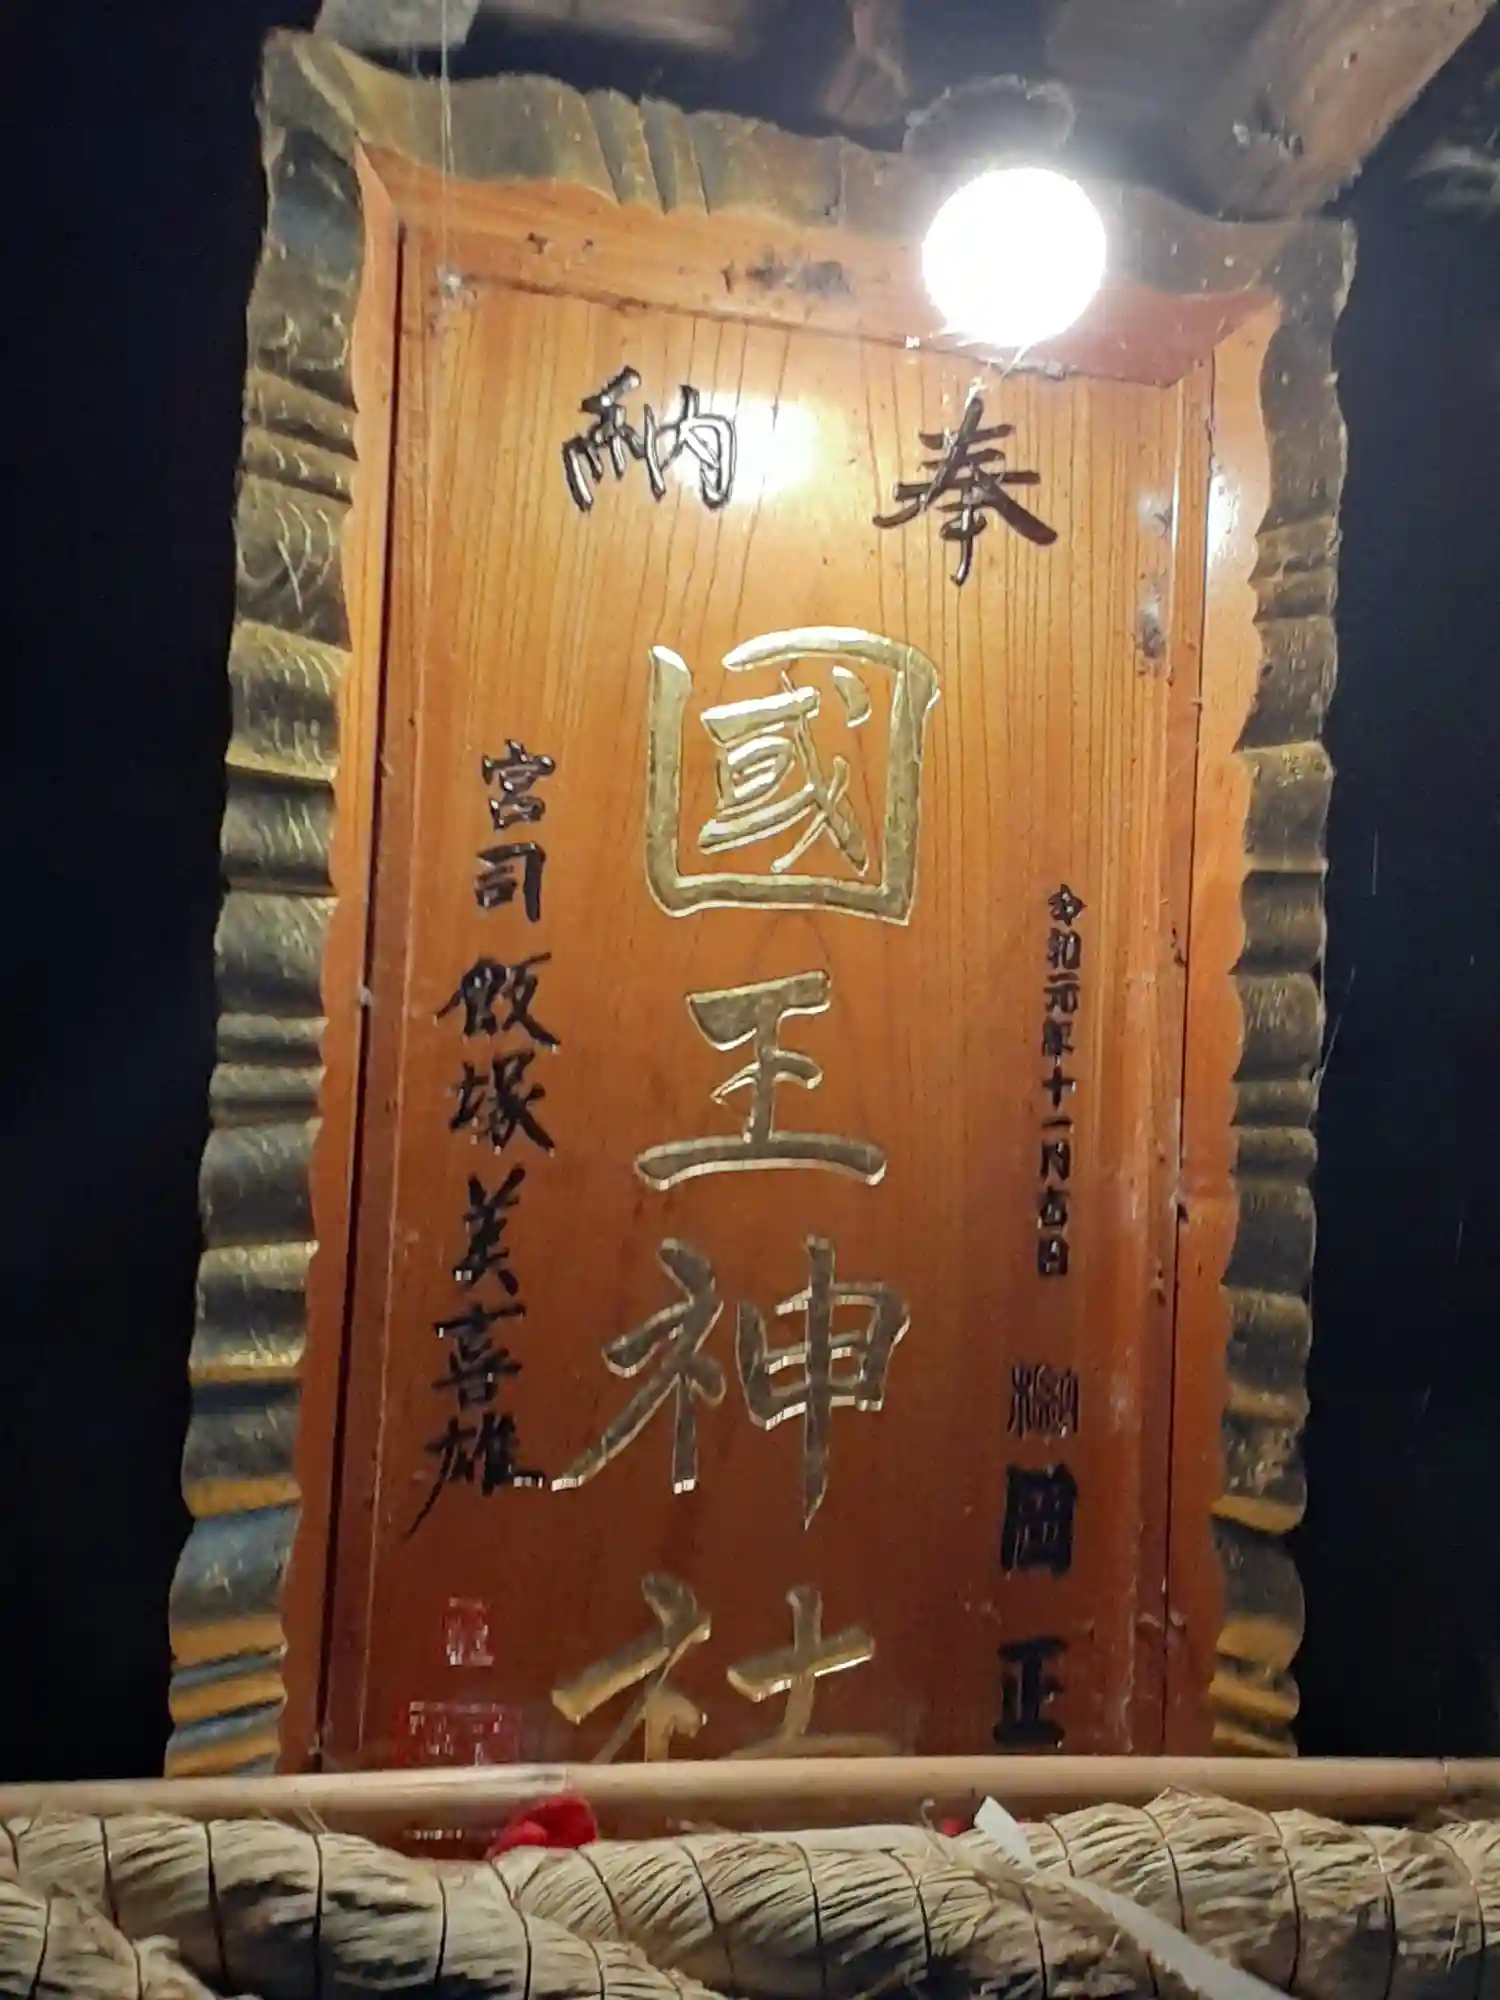 奉納
國王神社
令和元年十一月吉日
岡正
宮司 飯塚美喜雄